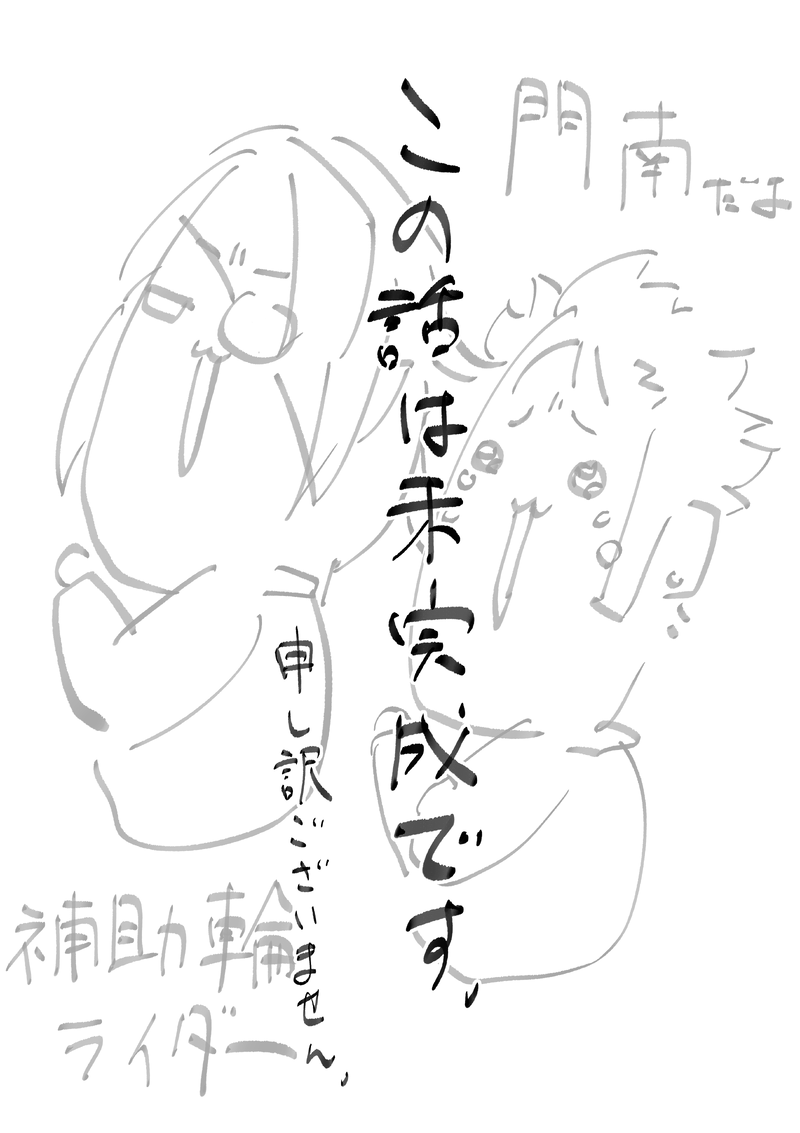 門南だよ
この話は未完成です。
申し訳ございません。
補助輪
ライダー